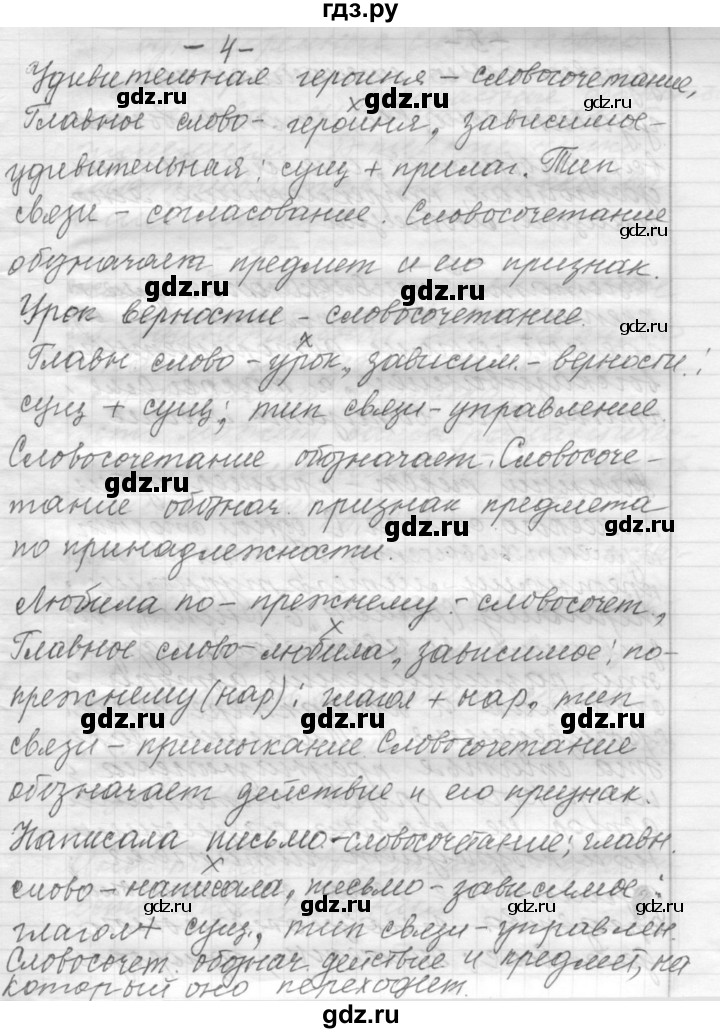 гдз.ру
- 4 -
Удивительная героиня - словосочетание,
Главное слово - героиня, зависимое -
удивительная: сущ + прилаг. Тип
связи - согласование. Словосочетание
обозначает предмет и его признак.
Урок верности - словосочетание.
Главн слово - урок, зависим. - верности:
сущ + сущ; тип связи - управление.
Словосочетание обозначает: Словосоче-
тание обознач. признак предмета
по принадлежности.
Любила по-прежнему - словосочет,
Главное слово - любила, зависимое: по-
прежнему (нар): глагол + нар. тип
связи - примыкание. Словосочетание
обозначает действие и его признак.
Написала письмо - словосочетание; главн.
слово - написала, письмо - зависимое:
глагол + сущ., тип связи - управлен.
Словосочет. обознач. действие и предмет, на
который оно переходит.